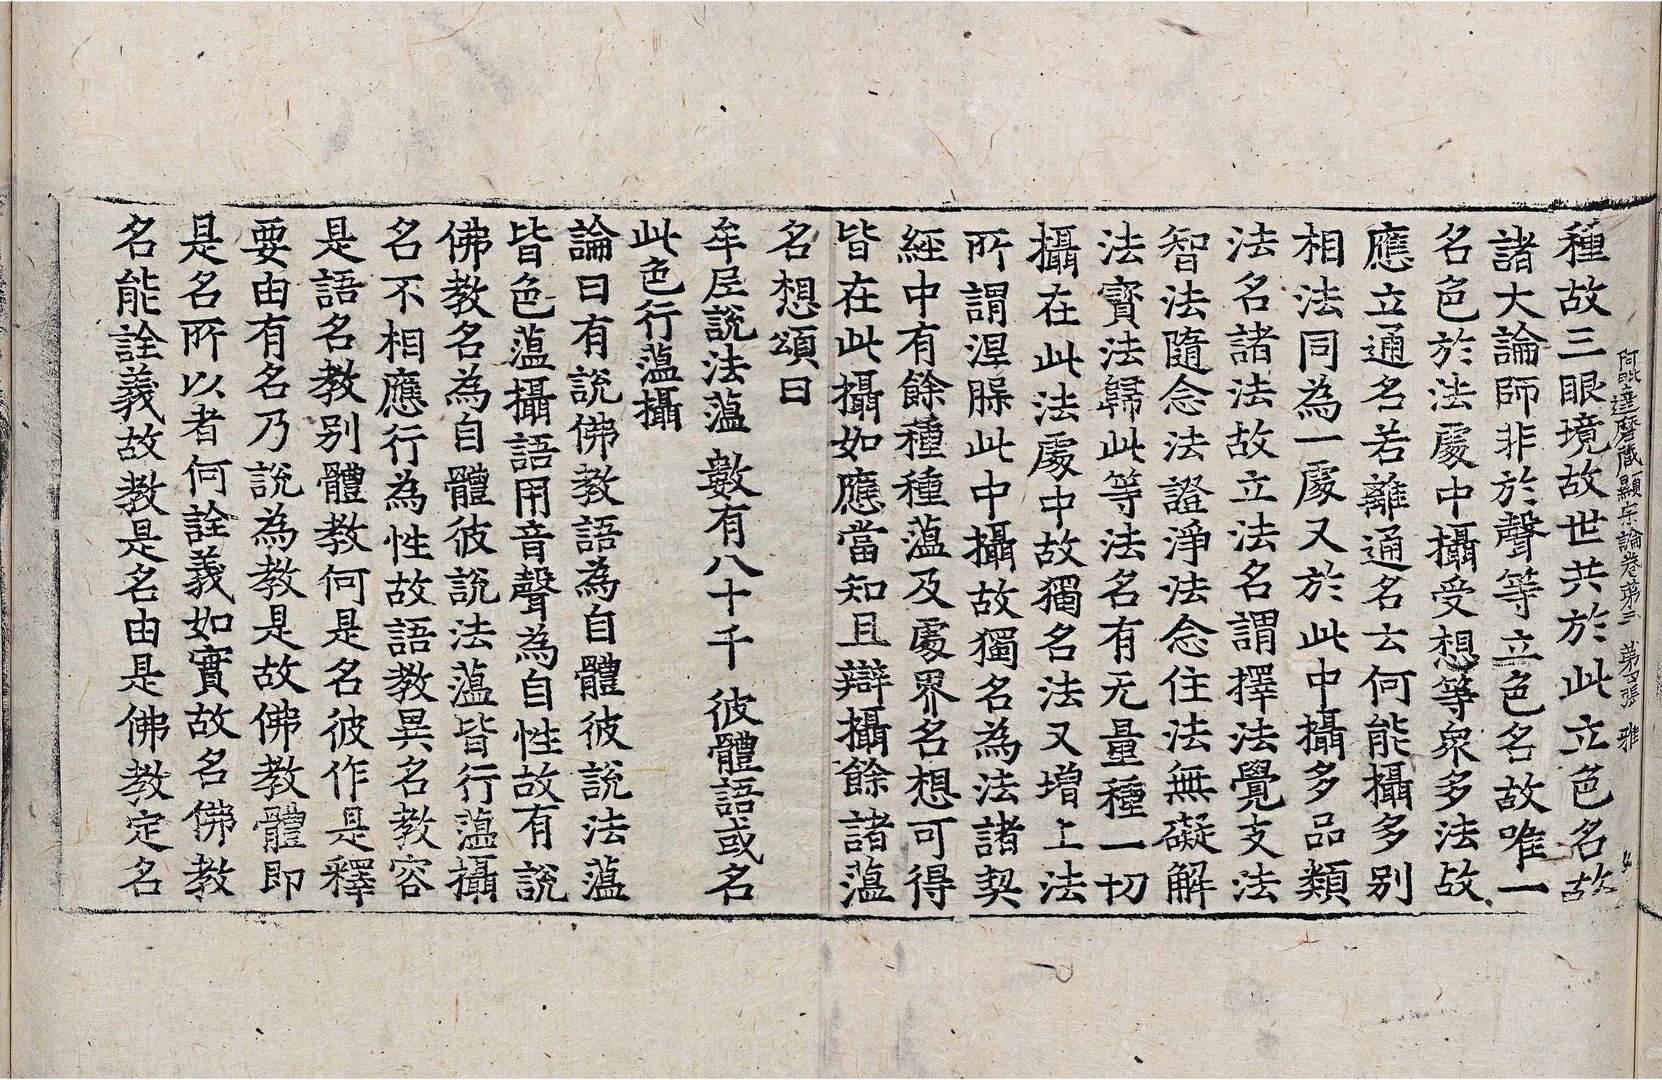 阿毗達磨藏顯宗論卷第三　第四張　雅
種故三眼境故世共於此立色名故
諸大論師非於聲等立色名故唯一
名色於法處中攝受想等衆多法故
應立通名若離通名云何能攝多別
相法同為一處又於此中攝多品類
法名諸法故立法名謂擇法覺支法
智法隨念法證淨法念住法無礙解
法寳法歸此等法名有无量種一切
攝在此法處中故獨名法又增上法
所謂涅槃此中攝故獨名為法諸契
經中有餘種種蕰及處界名想可得
皆在此攝如應當知且辯攝餘諸蕰
名想頌曰
牟尼說法蕰　數有八十千　彼體語或名
此色行蕰攝
論曰有說佛教語為自體彼說法蕰
皆色蕰攝語用音聲為自性故有說
佛教名為自體彼說法蕰皆行蕰攝
名不相應行為性故語教異名教容
是語名教別體教何是名彼作是釋
要由有名乃說為教是故佛教體即
是名所以者何詮義如實故名佛教
名能詮義故教是名由是佛教定名